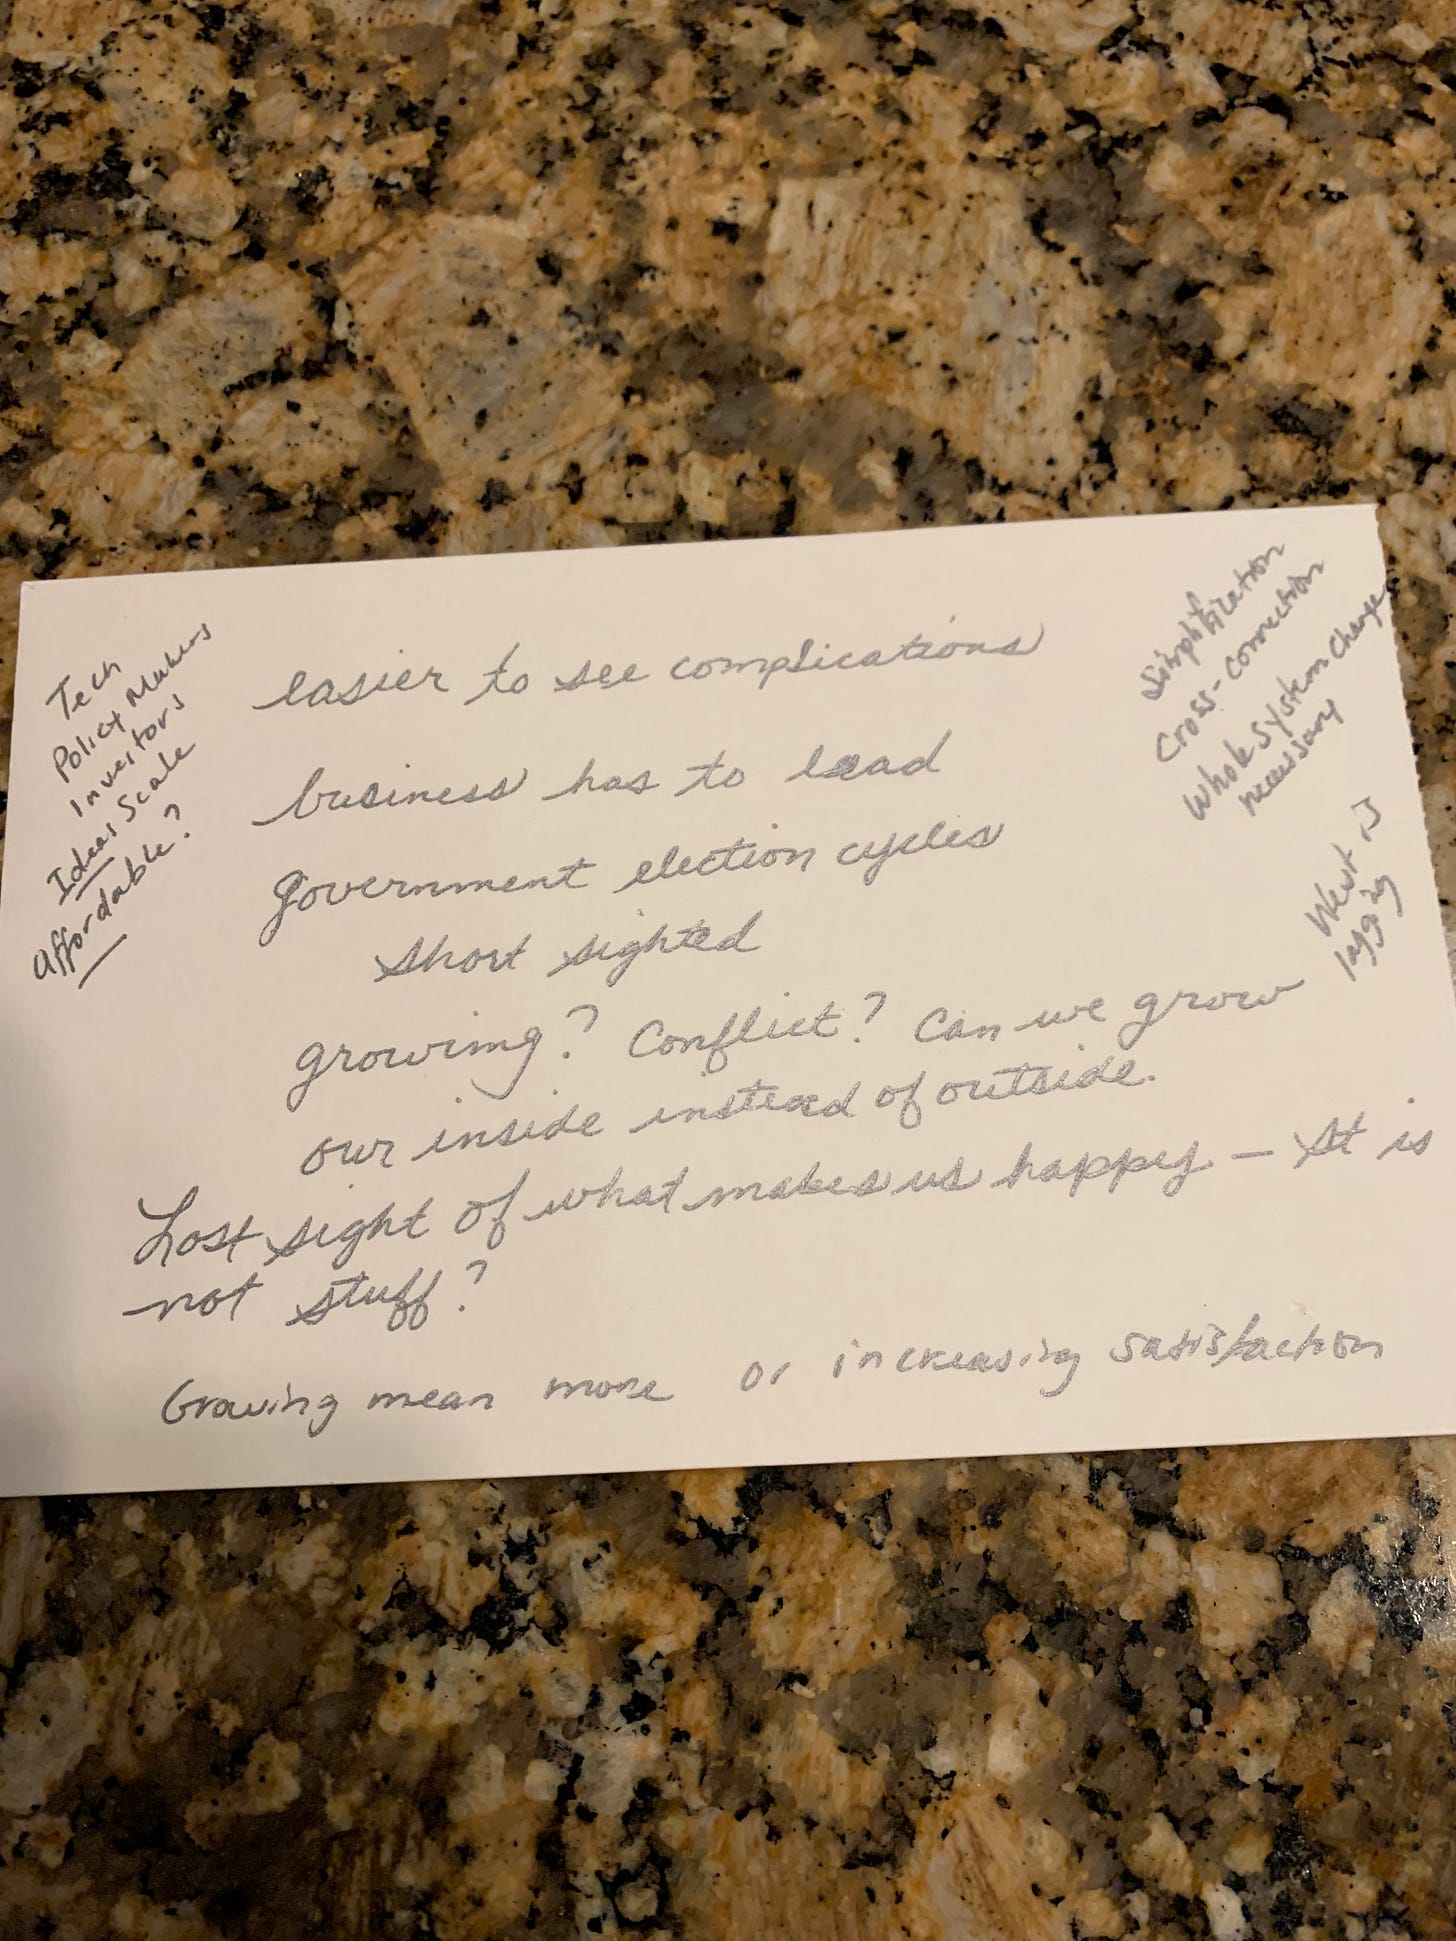 Tech
Policy Makers
Investors
Ideas Scale
affordable?
easier to see complications
business has to lead
Government election cycles
short sighted
growing? Conflict? Can we grow
our inside instead of outside.
Lost sight of what makes us happy – It is
not stuff?
Growing mean more or increasing satisfaction
Simplification
Cross-Connection
Whole System Change
necessary
West is
lagging